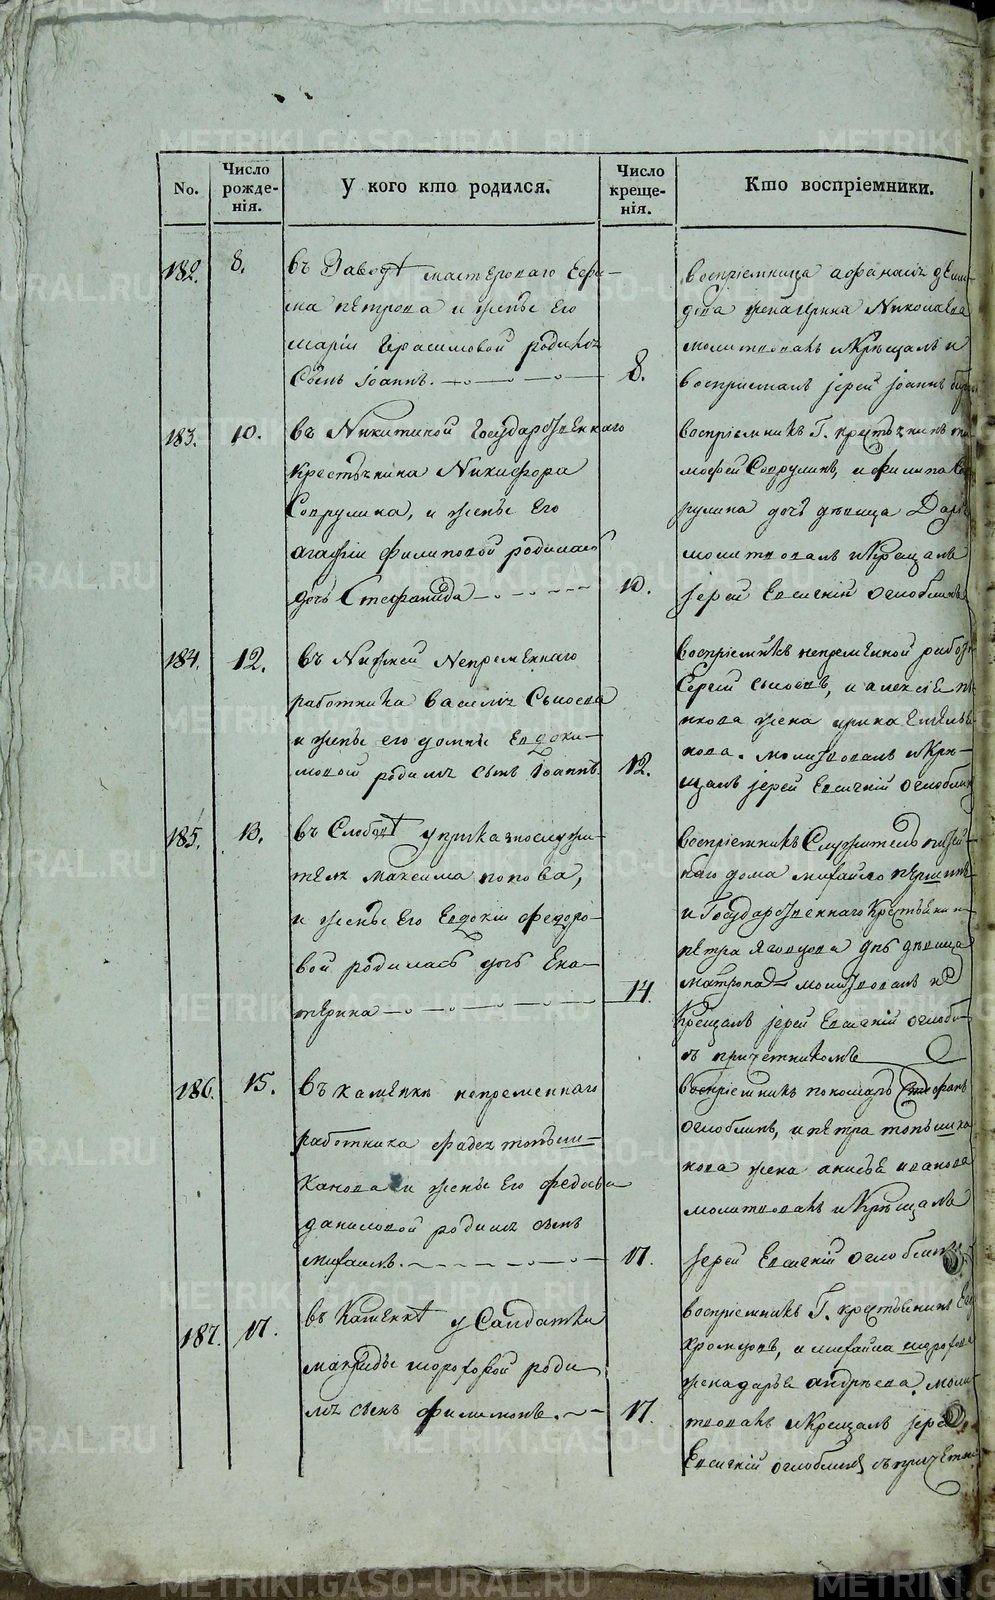 No.
Число
рожде-
нія.
У кого кто родился.
Число
креще-
нія.
Кто воспріемники.
182. 8.
въ Заводѣ мастероваго Ефи-
ма Петрова и жены его
маріи Герасимовой родился
Сынъ Іоаннъ.
8.
воспріемница афанасія деми-
дова жена ирина Николаева
молитвовалъ и Крещалъ и
воспріималъ іерей іоаннъ
183. 10.
въ Никитиной Государственнаго
крестьянина Никифора
Сопрулина, и жены его
агафіи филиповой родилась
дочь Стефанида
10.
воспріемникъ Г. крестьянинъ ти-
мофей Сопрулинъ, и филипа Соп-
рулина дочь дѣвица Дарья
молитвовалъ и Крещалъ
іерей Евсигній Оглоблинъ
184. 12.
въ Нижней Непременнаго
работника василія Сысоева
и жены его домны Евдоки-
мовой родился сынъ Іоаннъ
12.
воспріемникъ непременной работн
Сергій сысоевъ, и алексіе
нкова жена ирина емелья-
нова. молитвовалъ и Кре-
щалъ іерей Евсигній Оглоблинъ
185. 13.
въ Слободѣ у приказнослужи-
теля максима попова,
и жены его Евдокіи федоро-
вой родилась дочь Ека-
терина
14.
воспріемникъ Служитель питей-
наго дома михайло
и Государственнаго Крестьянина
петра Яговцова дочь девица
матрона молитвовалъ и
Крещалъ іерей Евсигній Оглобл
съ причетникомъ
186. 15.
въ каменкѣ непременнаго
работника фадея топыши-
канова и жены его федосьи
даниловой родился сынъ
михаилъ.
17.
воспріемникъ пономарь Стефанъ
Оглоблинъ, и петра топышка
нова жена анисья иванова
молитвовалъ и Крещалъ
іерей Евсигній Оглоблинъ
187. 17.
въ Каменкѣ у Салдатки
макриды шороховой роди
лся сынъ филимонъ.
17.
воспріемникъ Г. крестьянинъ
кромцовъ, и михайла шорохова
жена дарья андреева. моли-
твовалъ и Крещалъ іерей
Евсигній оглоблинъ съ причетни
METRIKI.GASO-URAL.RU